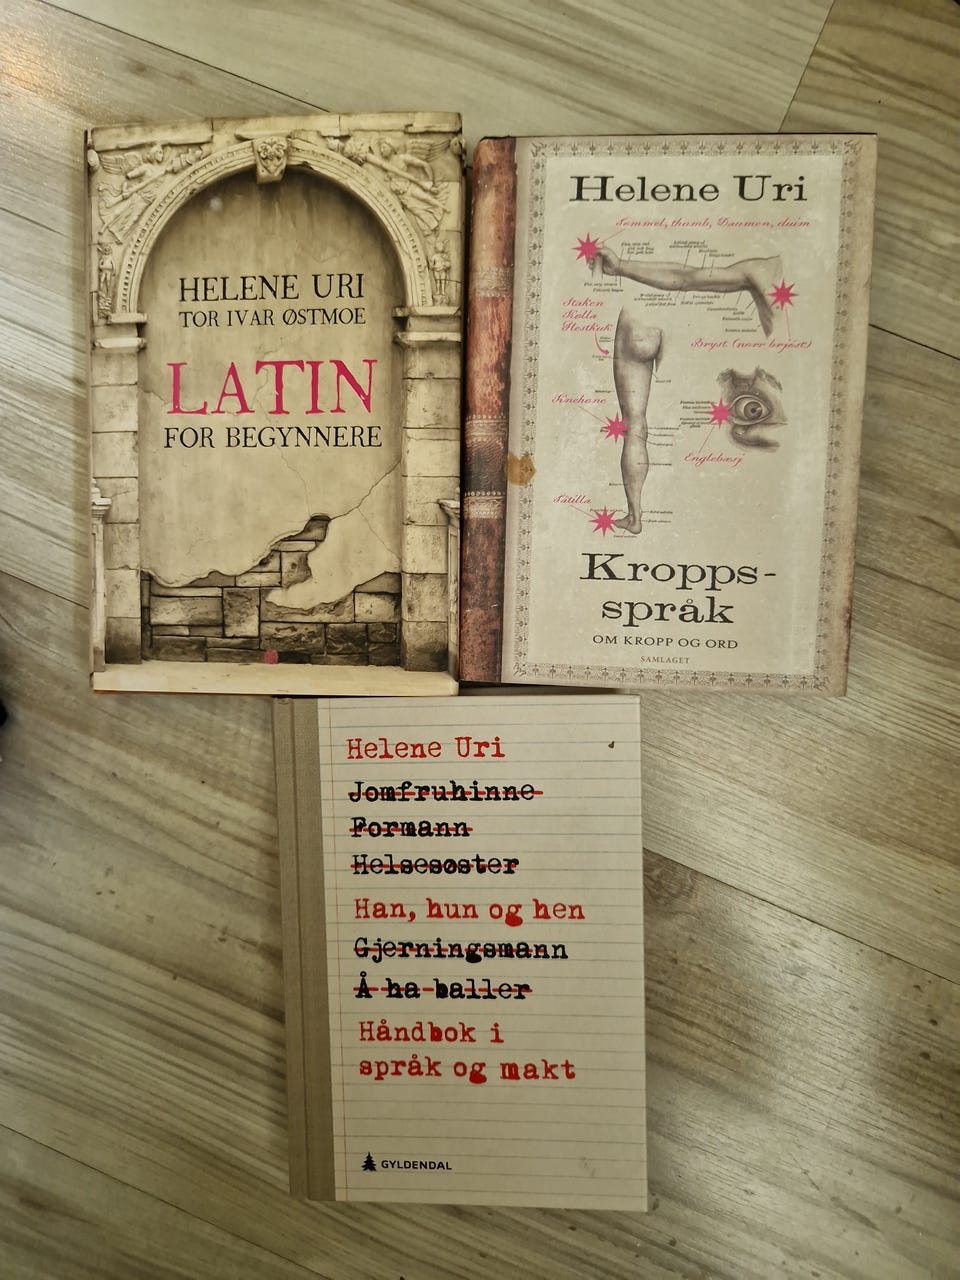 HELENE URI
TOR IVAR ØSTMOE
LATIN
FOR BEGYNNERE
Helene Uri
Tommel, thumb, Daumen, duim
Staken
Kølla
Hestkuk
Bryst (norr brjóst)
Knehøne
Englebasj
Tåtilla
Kropps-
språk
OM KROPP OG ORD
SAMLAGET
Helene Uri
Jomfruhinne
Formann
Helsesøster
Han, hun og hen
Gjerningsmann
Å ha baller
Håndbok i
språk og makt
GYLDENDAL